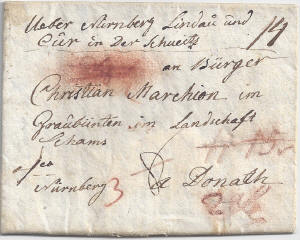 Ueber Nürnberg Lindau und
Cür in der Schweitz 14
an Bürger
Christian Marchion im
Graubünten im Landschaft
Schams
Nürnberg 3 de Donath